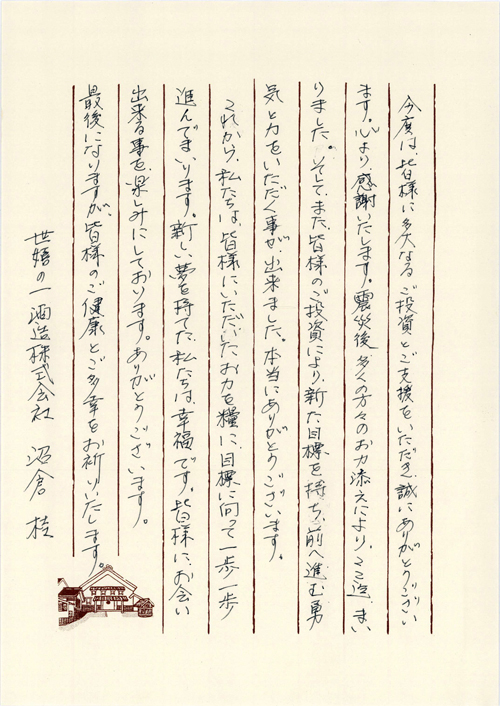 今度は、皆様に多大なるご投資とご支援をいただき、誠にありがとうござい
ます。心より感謝いたします。震災後、多くの方々のお力添えにより、ここ迄、まい
りました。そして、また、皆様のご投資により、新た目標を持ち、前へ進む勇
気と力をいただく事が、出来ました。本当にありがとうございます。
これから、私たちは、皆様にいただいたお力を糧に、目標に向って一歩一歩
進んでまいります。新しい夢を持てた、私たちは、幸福です。皆様に、お会い
出来る事を、楽しみにしております。ありがとうございます。
最後になりますが、皆様のご健康とご多幸をお祈りいたします。
世嬉の一酒造株式会社 沼倉 桂